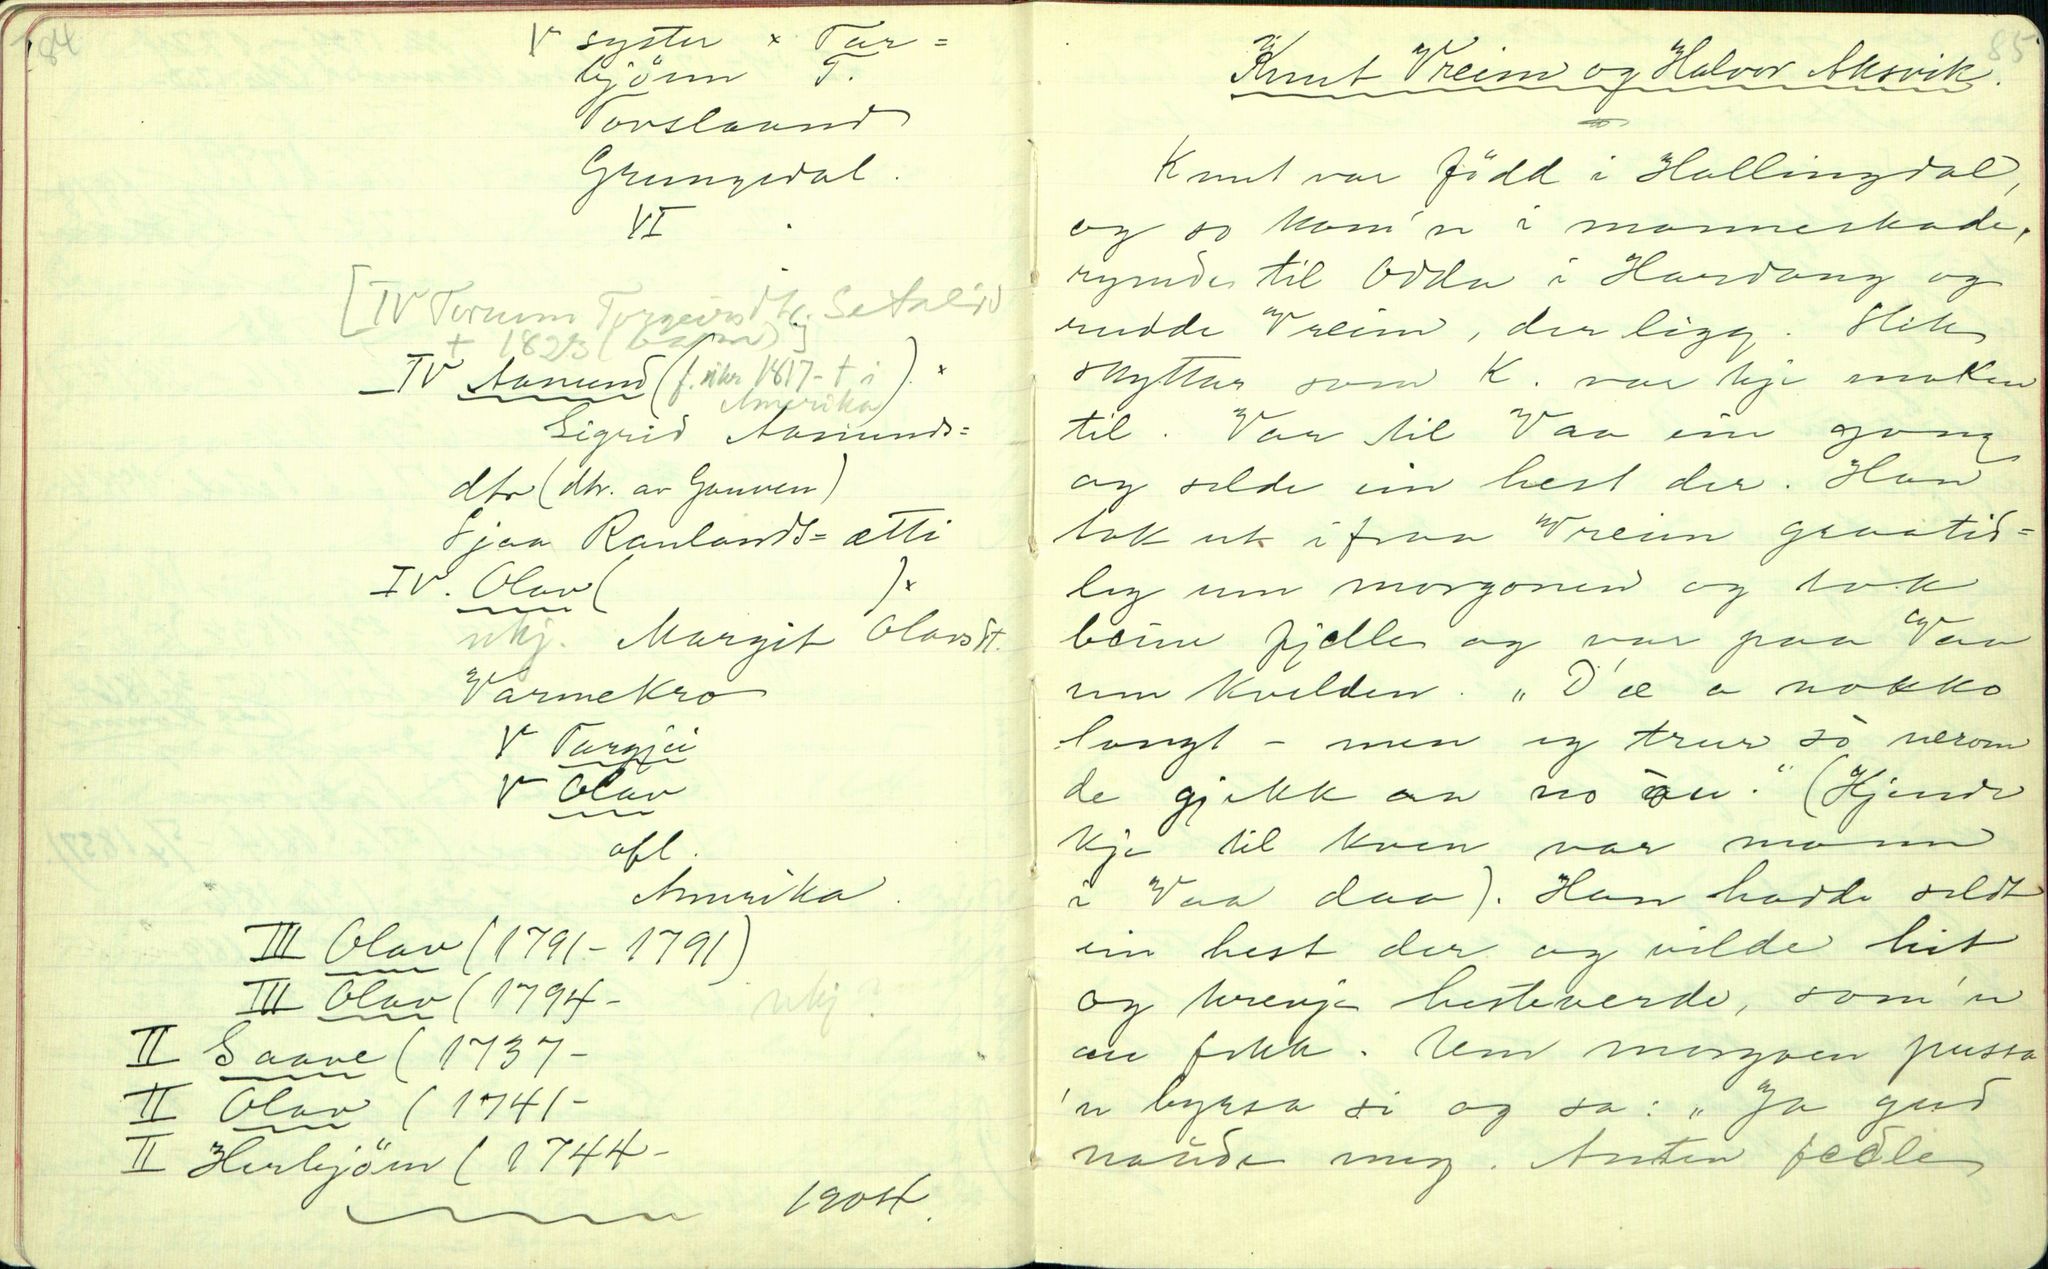 184
V syster × Tar=
bjönn T.
Torslaand
Grungedal.
VI
[IV Torunn Torgeirsdtr. Setalid
+ 1823 (barn)]
IV Aanund (f. ikr 1817 - + i
Amerika) ×
Sigrid Aanunds=
dtr (dtr. av Gauven)
Sjaa Raulands=ætti
IV. Olav ( )×
ukj. Margit Olavsdt.
Varmekro
V Targjei
V Olav
afl.
Amerika.
III Olav (1791 - 1791)
III Olav (1794 - ukj?
II Saave (1737 -
II Olav (1741 -
II Herbjörn (1744 -
1904.
85
Knut Vreim og Halvor Aksvik.
Knut var född i Hallingdal,
og so kom'n i manneskade,
rymde til Odda i Hardang og
rudde Vreim, der ligg. Slik
skyttar som K. var kje maken
til. Var til Vaa ein gong
og selde ein hest der. Han
tok ut ifraa Vreim graatid=
leg um morgonen og tok
beine fjelle og var paa Vaa
um kvelden. "D'æ a nokko
langt - men eg trur so nærom
de gjekk an no au." (Kjende
kje til kven var mann
i Vaa daa). Han hadde seldt
ein hest der og vilde hit
og krevje hesteverde, som'n
au fekk. Um morgoen pussa
'n byrsa si og sa: "Ja gud
naade meg. Anten fedle